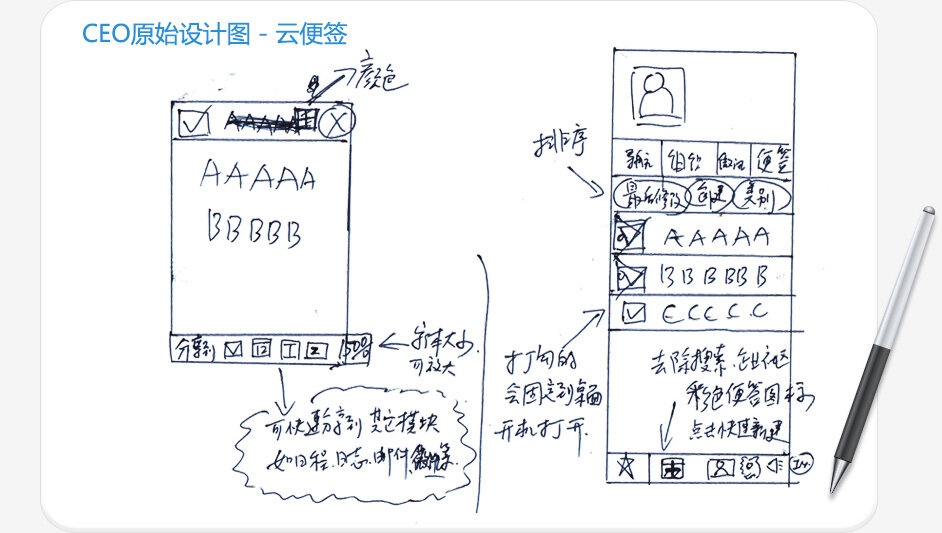 CEO原始设计图 - 云便签
颜色
AAAAA
AAAAA
BBBBB
分享到
字体大小
可放大
可快速分享到其它模块
如日程.日志.邮件
排序
导航 组织 微记 便签
最后修改 创建 类别
AAAAA
BBBBBB
CCCCC
打勾的
会固定到桌面
开机打开
去除搜索.
彩色便签图标
点击快速新建